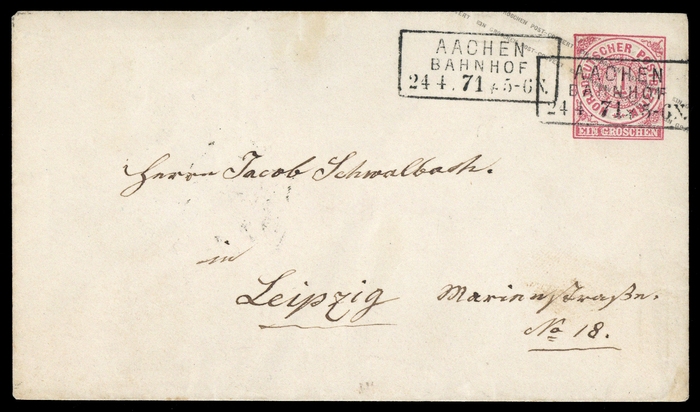 AACHEN
BAHNHOF
24 4. 71 5-6N.
AACHEN
BAHNHOF
24 4. 71 5-6N.
NORDDEUTSCHER POSTBEZIRK
EIN GROSCHEN
Herrn Jacob Schwalbach.
in
Leipzig
Marienstraße.
No 18.